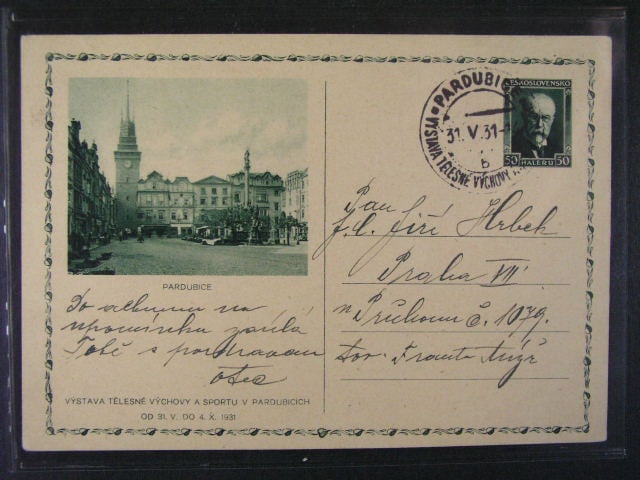 PARDUBICE
Do albumu na
upomínku zasílá
Totě s pozdravem
otec
VÝSTAVA TĚLESNÉ VÝCHOVY A SPORTU V PARDUBICÍCH
OD 31. V. DO 4. X. 1931
PARDUBICE
31.V.31
b
VÝSTAVA TĚLESNÉ VÝCHOVY
ČESKOSLOVENSKO
50 HALÉŘŮ 50
Pan
Jiří Hrbek
Praha VII
č. 1079.